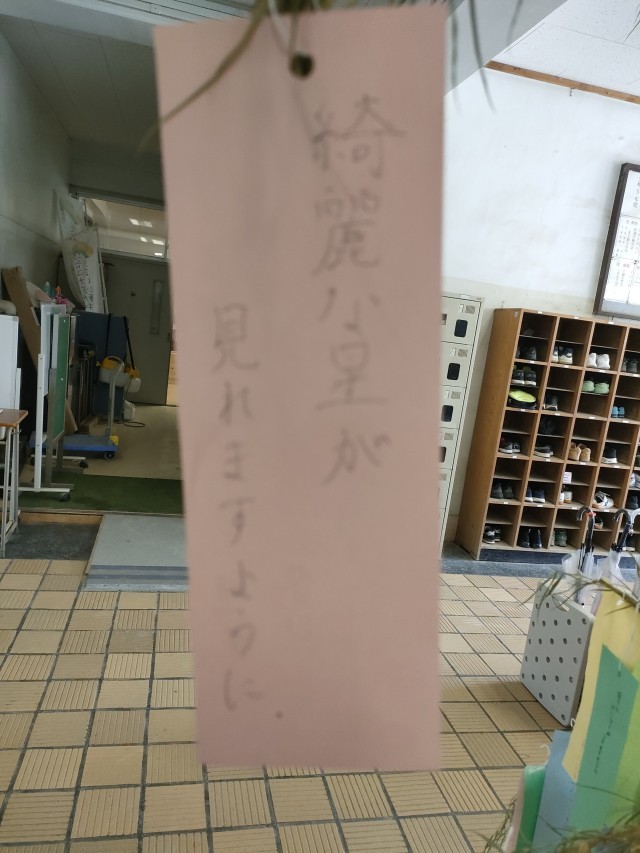 綺麗な星が
見れますように.